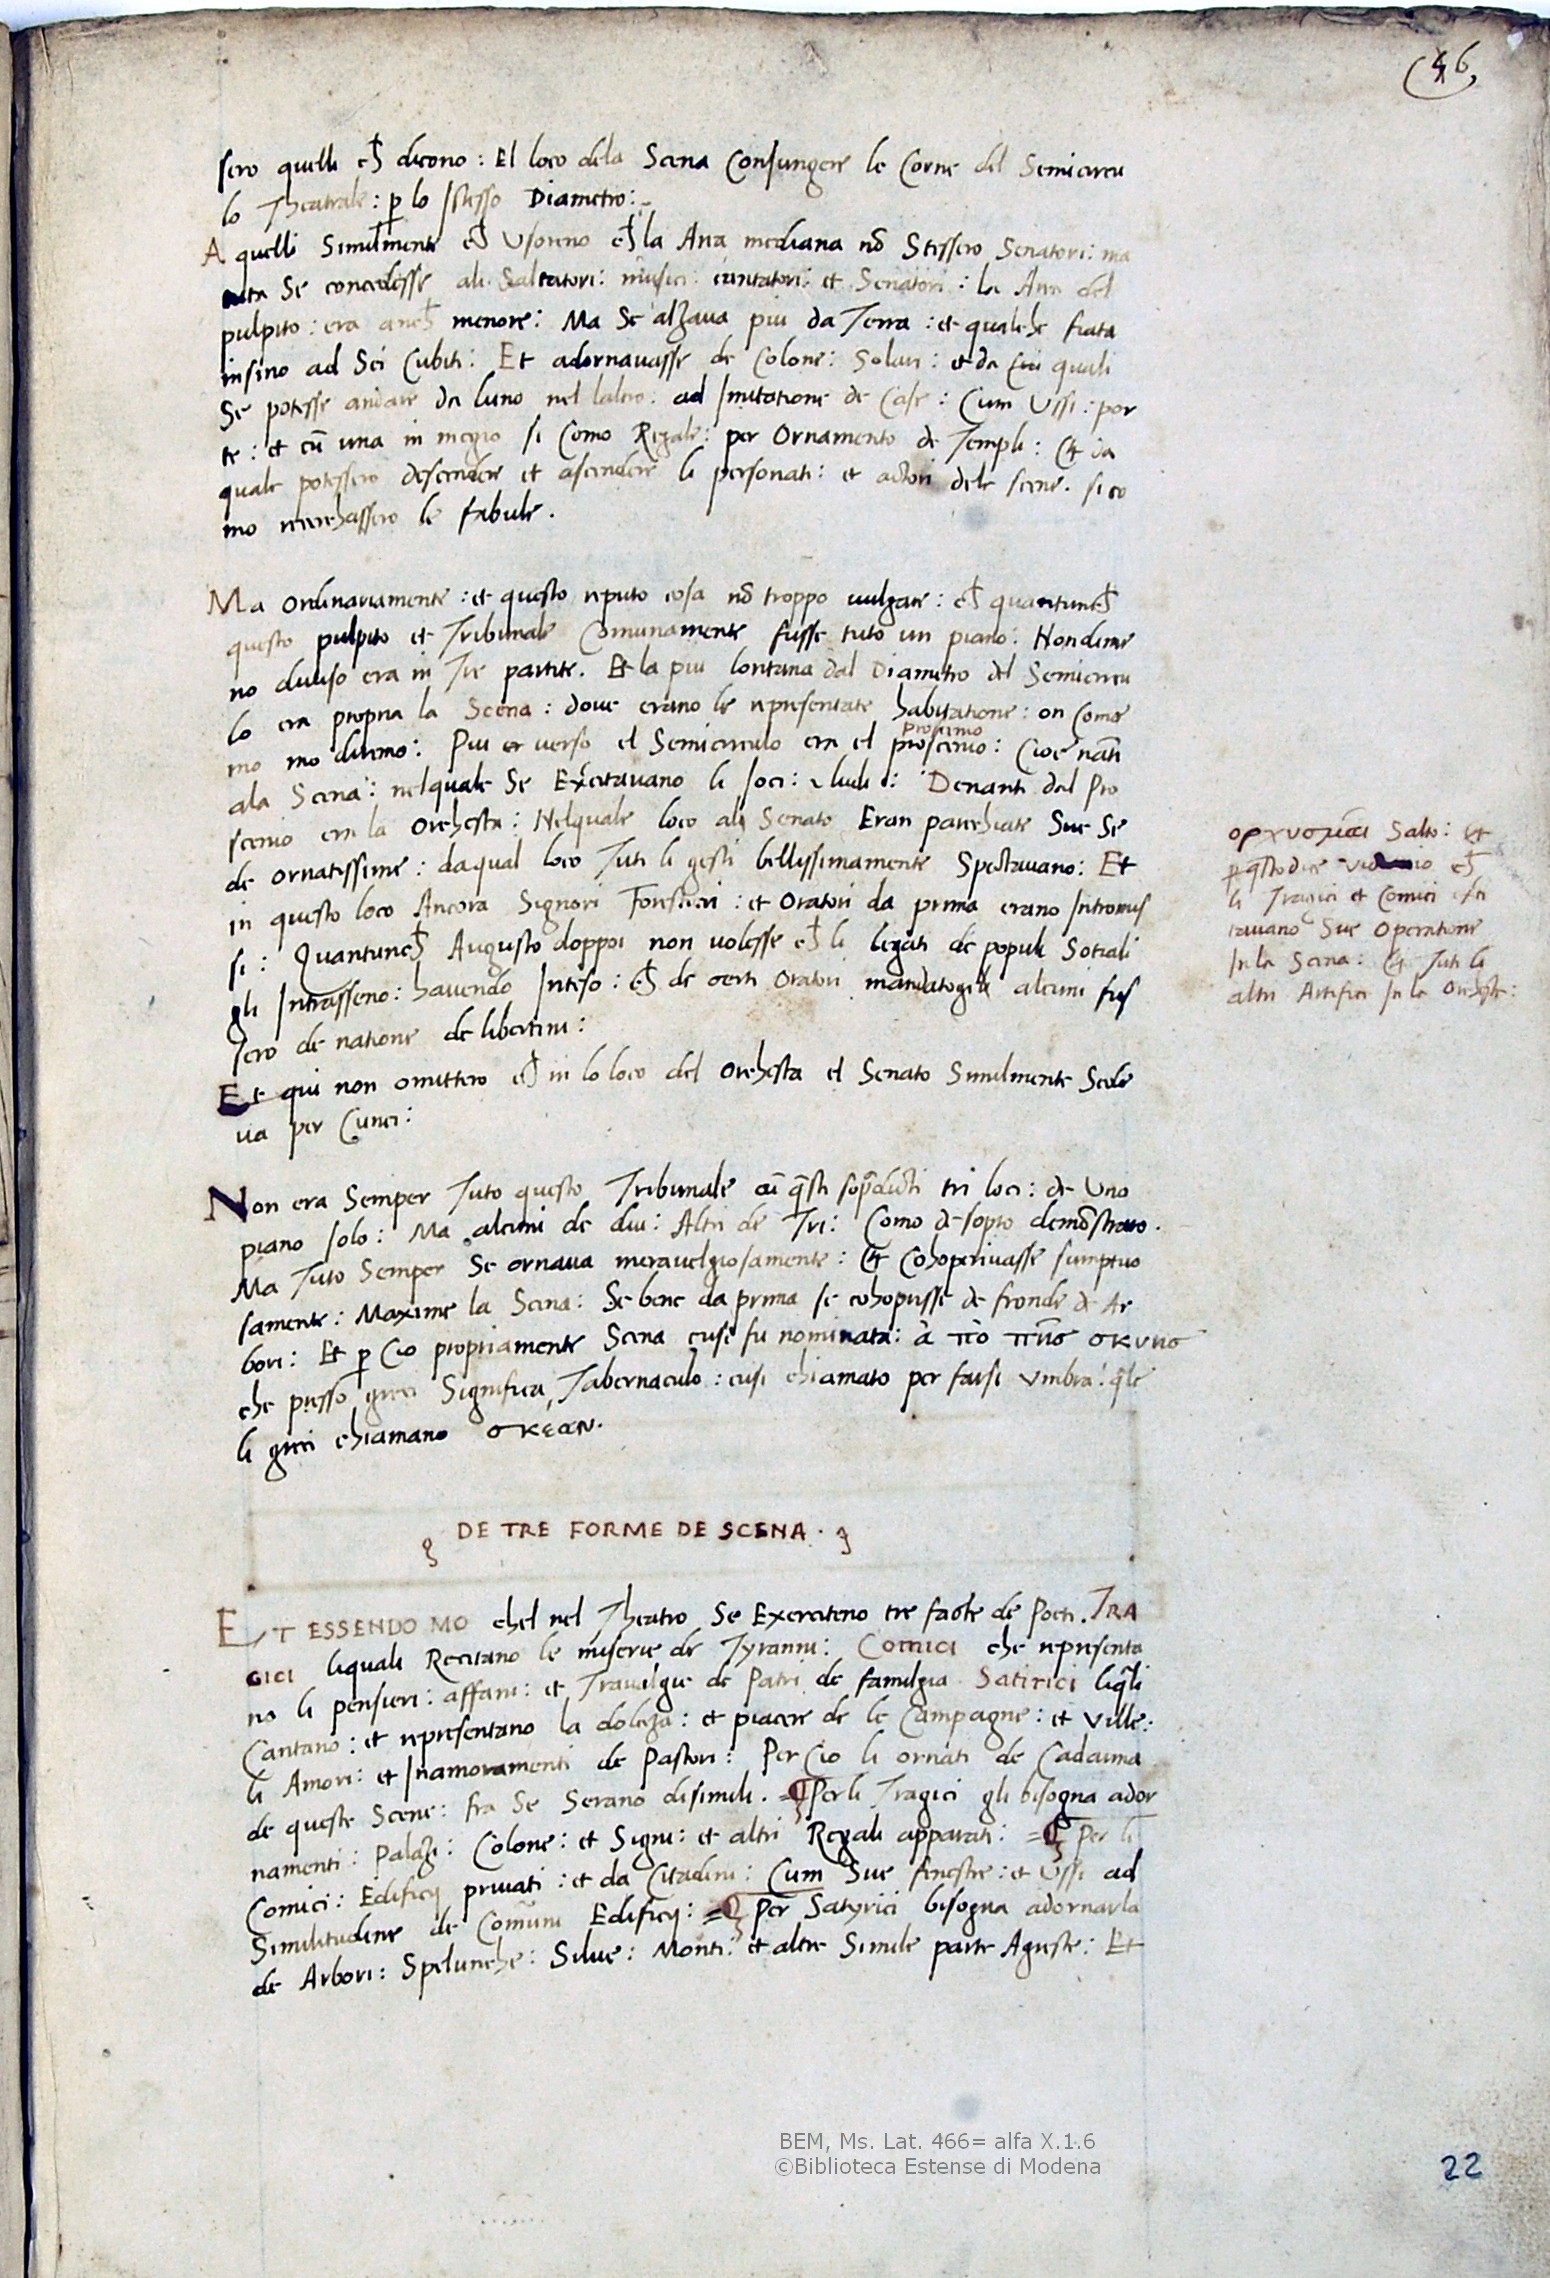 46
sero quelli ch̄ dicono : El loco dela Scena Conjungere le Corne del Semicircu
lo Theatrale : p̱ lo Istesso Diametro :
A quelli Similmente ch̄ Usoreno ch̄ la Area mediana nō Stessero Senatori : ma
Se concedesse ali Saltatori : musici : cantatori : et Senatori : la Area del
pulpito : era anch̄ menore : Ma Se alzaua piu da Terra : et qualche fiata
insino ad Sei Cubiti : Et adornauasse de Colone : Solari : et da quali
Se potesse andare da luno nel laltro . ad Imitatione de Case : Cum Ussi : por
te : et cū una in mezio si Como Regale : per Ornamento de Templi : Et da
quale potessero descendere et ascendere li personati : et actori dele scene . si co
mo recerchassero le fabule .
Ma Ordinariamente : et questo reputo cosa nō troppo uulgare : ch̄ quantunch̄
questo pulpito et Tribunale Comunamente fusse tuto un piano : Nondime
no diuiso era in Tre partite . Et la piu lontana dal Diametro del Semicircu
lo era propria la Scena : doue erano le representate habitatione : on Como
mo diremo : Piu uerso el Semicirculo era el proscenio : Cioe nāti
ala Scena : nelquale Se Exercitauano li Joci : ludi : Denanti dal Pro
scenio era la Orchestra : Nelquale loco ali Senato Eran parechiate Sue Se
de ornatissime : daqual loco Tuti li gesti bellissimamente Spectauano : Et
in questo loco Ancora Signori Forestieri : et Oratori da prima erano Intromis
si : Quantunch̄ Augusto doppoi non uolesse ch̄ li legati de populi Sotiali
gli Intrasseno : hauendo Inteso : ch̄ de certi Oratori mandatogli alcuni fus
sero de natione de libertini :
Et qui non omittero ch̄ in lo loco del Orchestra el Senato Similmente Sede
ua per Cunei :
ορχυσμαι Salto : Et
li Tragici et Comici exer
citauano Sue Operatione
In la Scena : Et Tuti li
altri Artifici In la Orchestra :
Non era Semper Tuto questo Tribunale cū q̄sti sop̄dicti tri loci : de Uno
piano solo : Ma alcuni de dui : Altri de Tri : Como de sopto demōstrato .
Ma Tuto Semper Se ornaua merauelgiosamente : Et Cohoperiuasse sumptuo
samente : Maxime la Scena : Se bene da prima se cohopersse de fronde de Ar
bori : Et p̱ Cio propriamente Scena cusi fu nominata : ὰ πὸ πῆσ σκυνσ
che presso greci Significa Tabernaculo : cusi chiamato per farsi Umbra : q̄le
li greci chiamano σκεαν .
DE TRE FORME DE SCENA .
ET ESSENDO MO chel nel Theatro Se Exerciteno tre facte de Poeti . TRA
GICI liquali Recitano le miserie de Tyranni : Comici che representa
no li pensieri : affani : et Trauilgie de Patri de familgia Satirici liq̄li
Cantano : et representano la doleza : et piacere de le Campagne : et Ville :
li Amori : et Inamoramenti de Pastori : Per Cio li ornati de Cadauna
de queste Scene : fra Se Serano disimili . = Per li Tragici gli bisogna ador
namenti : Palazi : Colone : et Signi : et altri Regali apparati : = Per li
Comici : Edificij priuati : et da Citadini : Cum Sue fenestre : et Ussi ad
Similitudine de Comūni Edificij : = Per Satyrici bisogna adornarla
de Arbori : Spelunche : Silue : Monti : et altre Simile parte Agreste : Et
BEM, Ms. Lat. 466= alfa X.1.6
©Biblioteca Estense di Modena
22